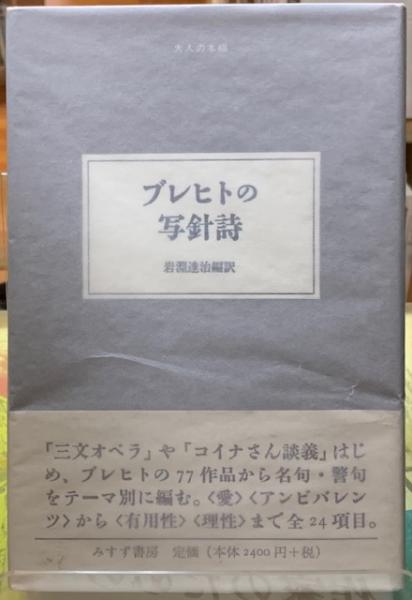 大人の本棚
ブレヒトの
写針詩
岩淵達治編訳
「三文オペラ」や「コイナさん談義」はじ
め、ブレヒトの77作品から名句・警句
をテーマ別に編む。〈愛〉〈アンビバレン
ツ〉から〈有用性〉〈理性〉まで全24項目。
みすず書房 定価（本体2400円+税）